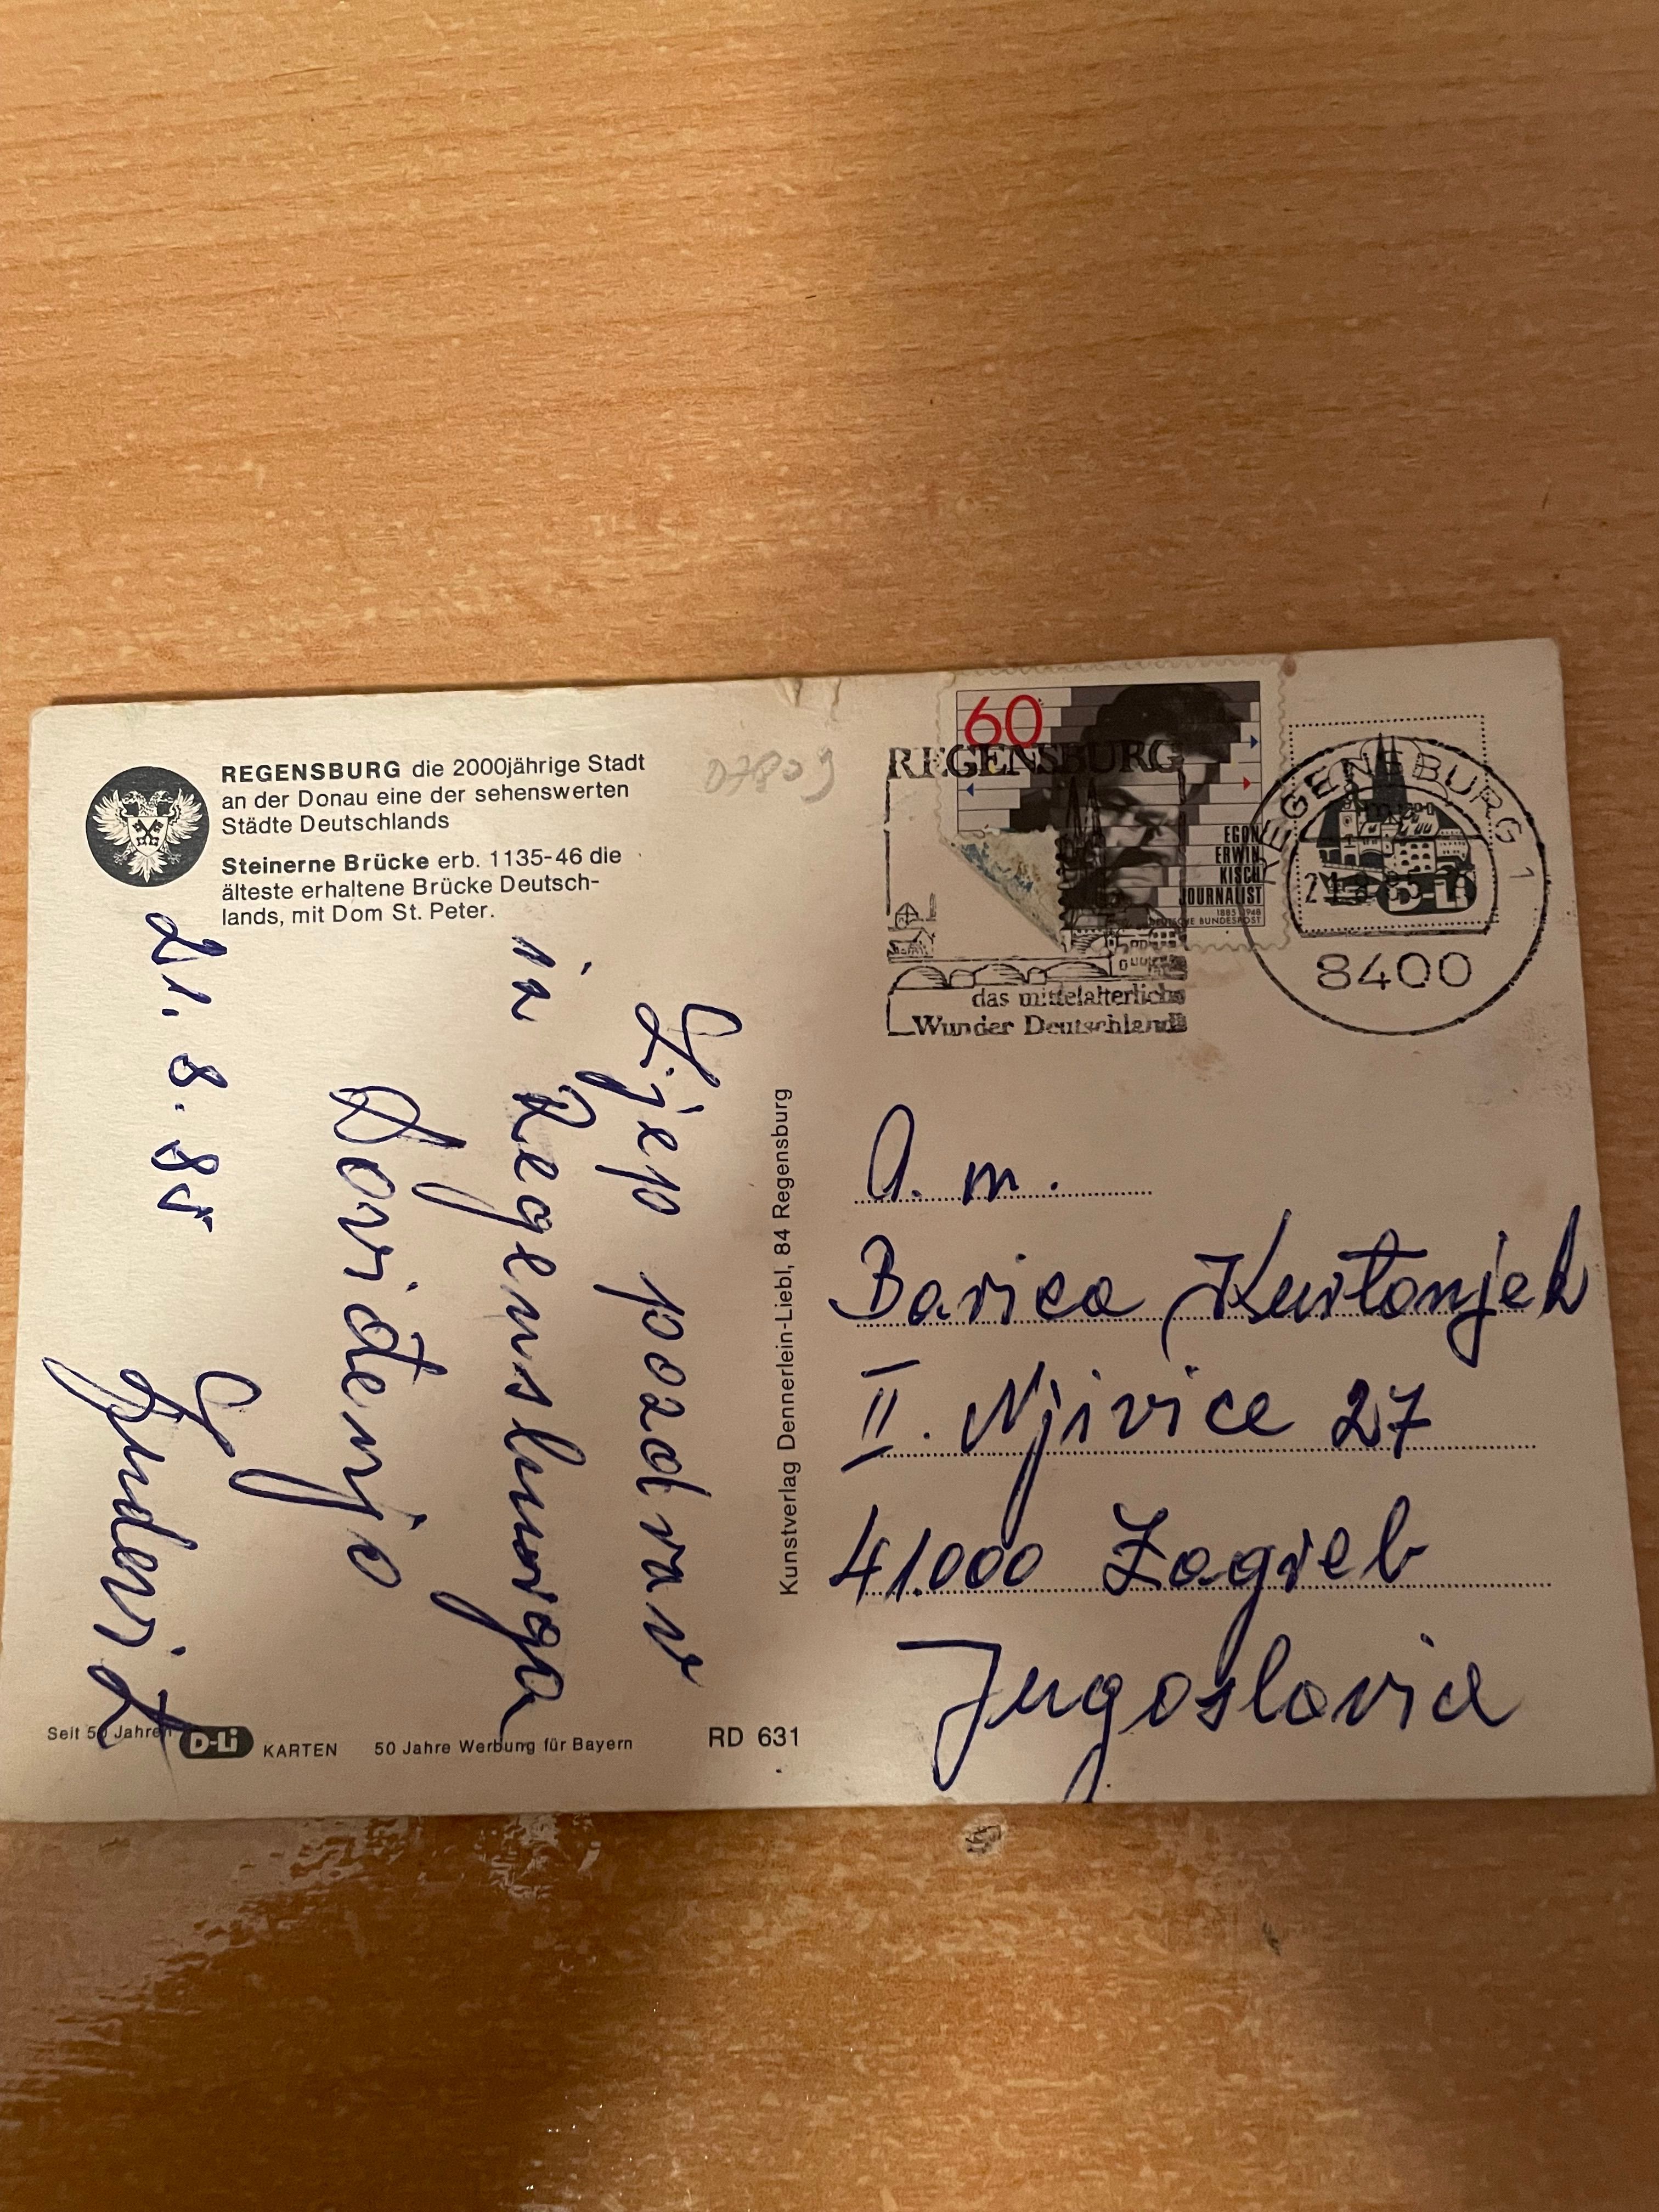 REGENSBURG die 2000jährige Stadt
an der Donau eine der sehenswerten
Städte Deutschlands
Steinerne Brücke erb. 1135-46 die
älteste erhaltene Brücke Deutsch-
lands, mit Dom St. Peter.
Lijep pozdrav
iz Regensburga
Dovidenja
21. 8. 85
Seit 50 Jahren D-Li KARTEN 50 Jahre Werbung für Bayern RD 631
Kunstverlag Dennerlein-Liebl, 84 Regensburg
60
EGON
ERWIN
KISCH
JOURNALIST
1885 1948
DEUTSCHE BUNDESPOST
REGENSBURG
das mittelalterliche
Wunder Deutschlands
REGENSBURG 1
D-Li
8400
Barica Kurtanjek
II. Njivice 27
41.000 Zagreb
Jugoslavia